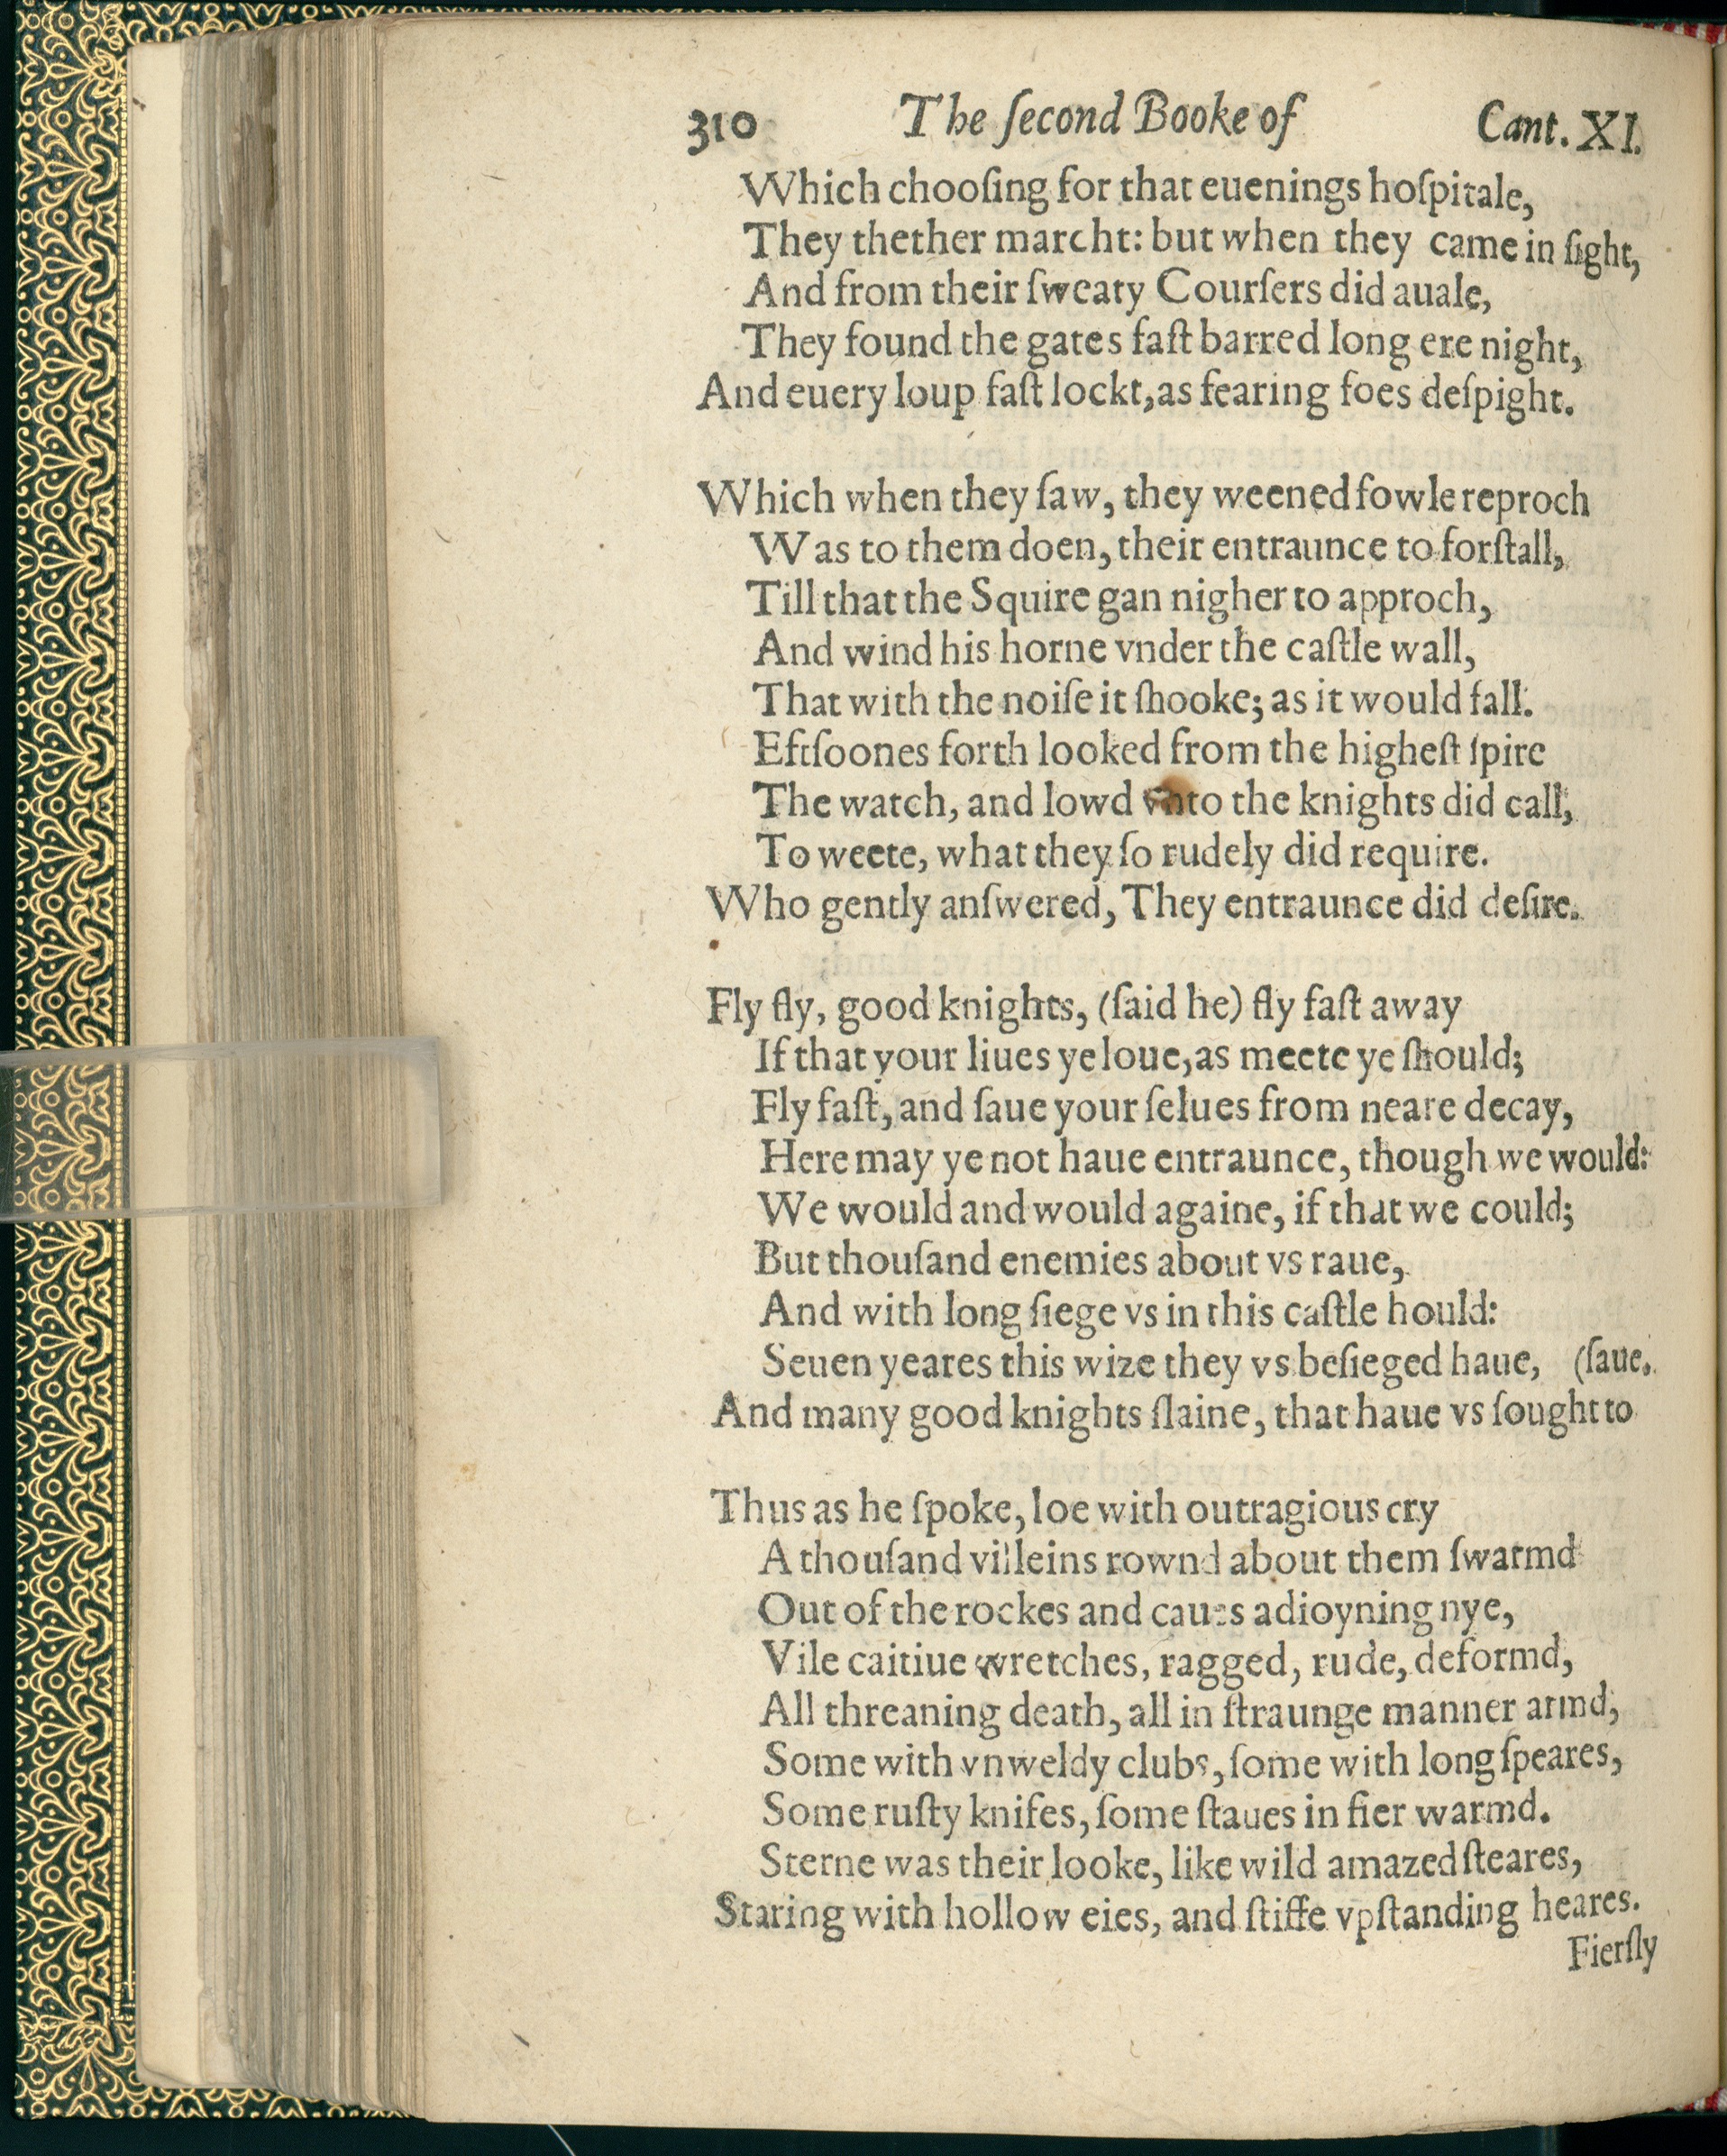 310 The ſecond Booke of Cant. XI.
Which chooſing for that euenings hoſpitale,
They thether marcht: but when they came in ſight,
And from their ſweaty Courſers did auale,
They found the gates faſt barred long ere night,
And euery loup faſt lockt, as fearing foes deſpight.
Which when they ſaw, they weened fowle reproch
Was to them doen, their entraunce to forſtall,
Till that the Squire gan nigher to approch,
And wind his horne vnder the caſtle wall,
That with the noiſe it ſhooke; as it would fall:
Eftſoones forth looked from the higheſt ſpire
The watch, and lowd vnto the knights did call,
To weete, what they ſo rudely did require.
Who gently anſwered, They entraunce did deſire.
Fly fly, good knights, (ſaid he) fly faſt away
If that your liues ye loue, as meete ye ſhould;
Fly faſt, and ſaue your ſelues from neare decay,
Here may ye not haue entraunce, though we would:
We would and would againe, if that we could;
But thouſand enemies about vs raue,
And with long ſiege vs in this caſtle hould:
Seuen yeares this wize they vs beſieged haue, (ſaue.
And many good knights ſlaine, that haue vs ſought to
Thus as he ſpoke, loe with outragious cry
A thouſand villeins rownd about them ſwarmd
Out of the rockes and caues adioyning nye,
Vile caitiue wretches, ragged, rude, deformd,
All threaning death, all in ſtraunge manner armd,
Some with vnweldy clubs, ſome with long ſpeares,
Some ruſty knifes, ſome ſtaues in fier warmd.
Sterne was their looke, like wild amazed ſteares,
Staring with hollow eies, and ſtiffe vpſtanding heares.
Fierſly